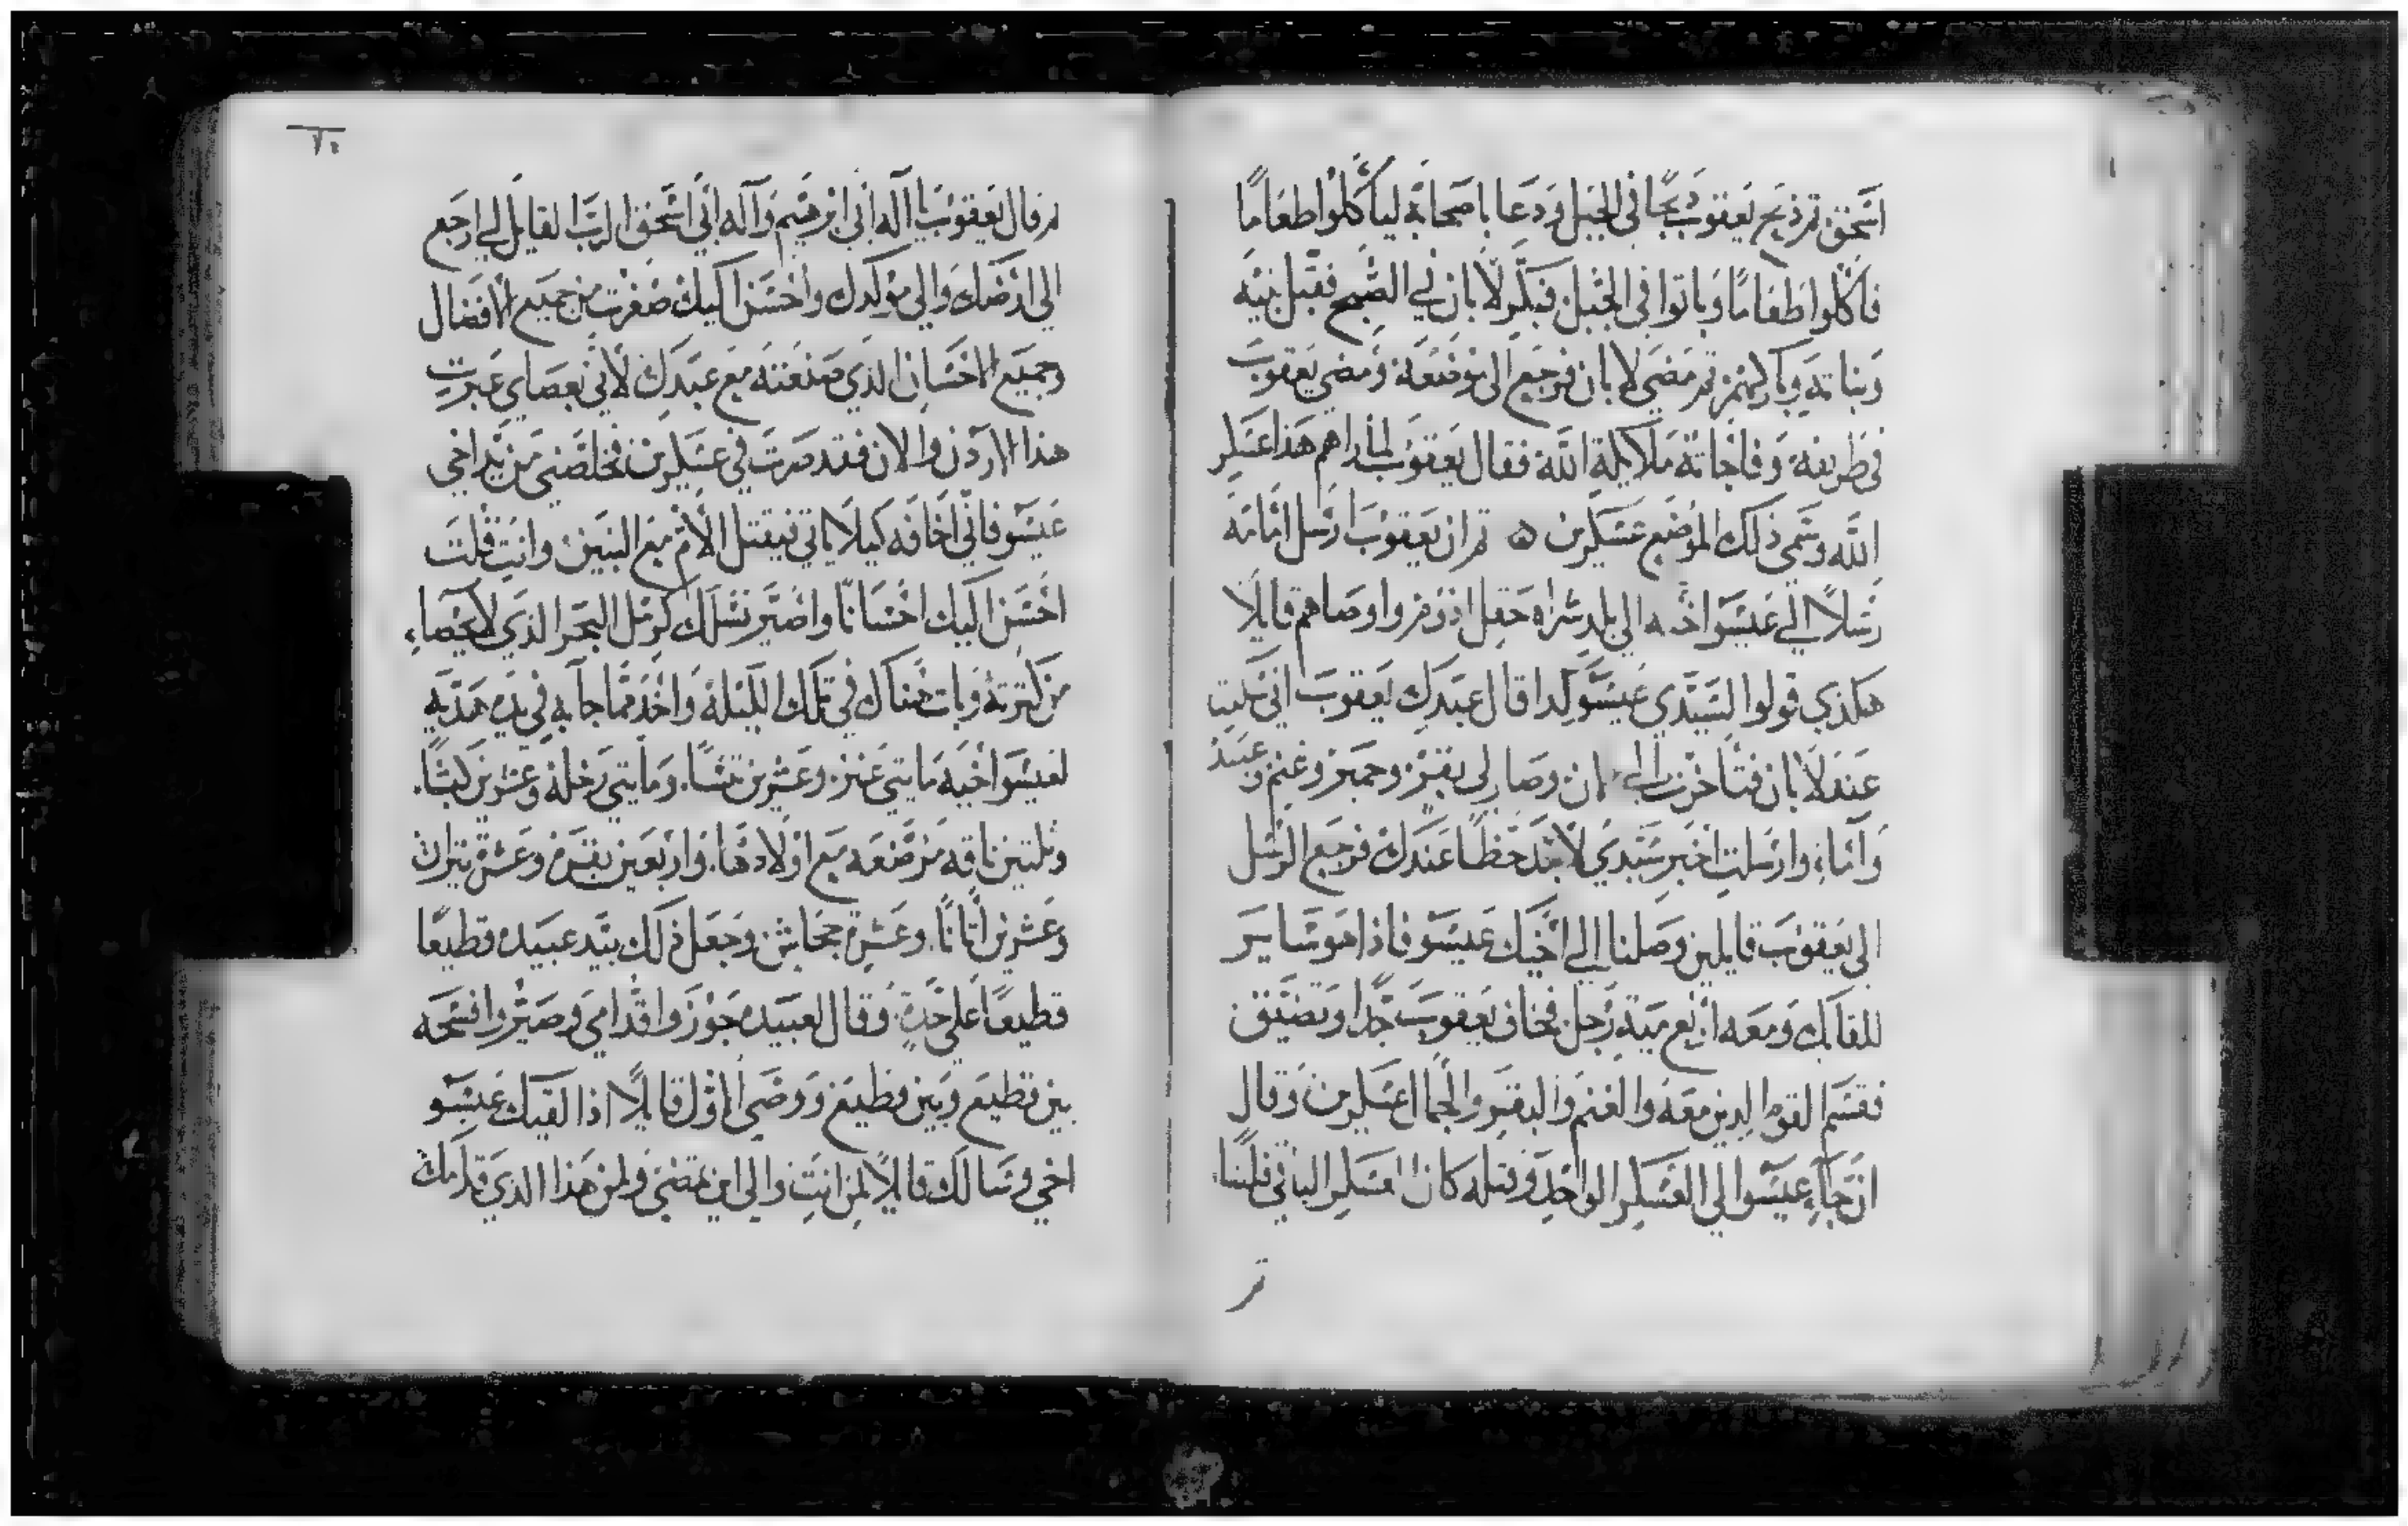 اسحق ثم ذبح يعقوب ذبحا في الجبل ودعا باصحابه ليأكلوا طعاما
فاكلوا طعاما وباتوا في الجبل فبكر لابان في الصبح فقبل بنيه
وبناته وباركهم ثم مضى لابان فرجع الى موضعه ومضى يعقوب
في طريقه وفاجاته ملايكة الله فقال يعقوب لما راهم هذا عسكر
الله وسمى ذلك الموضع عسكرين ه ثم ان يعقوب ارسل امامه
رسلا الي عيسو اخيه الى بلد سراه حقل ادوم واوصاهم قايلا
هكذي قولوا لسيدي عيسو كدا قال عبدك يعقوب اني سكنت
عند لابان فتاخرت الي الان وصار لي بقر وحمير وغنم وعبيد
وآماء وارسلت اخبر سيدي لاجد حظا عندك فرجع الرسل
الى يعقوب قايلين وصلنا الي اخيك عيسو فاذا هو ساير
للقاك ومعه اربع ميه رجل فخاف يعقوب جدا وتضيق
فقسم القوم الدين معه والغنم والبقر والجمال عسكرين وقال
ان جآء عيسو الى العسكر الواحد وقتله كان العسكر الباقي فلتا
ثم
٦٠
ثم قال يعقوب يا آله ابي ابرهيم وآله ابي اسحق الرب القايل لي ارجع
الى ارضك والى مولدك واحسن اليك صغرت من جميع الافضال
وجميع الاحسان الذي صنعته مع عبدك لاني بعصاي عبرت
هذا الاردن والان فقد صرت في عسكرين فخلصني من يد اخي
عيسو فاني اخافه كيلا ياتي فيقتل الام مع البنين وانت قلت
احسن اليك احسانا واصير نسلك كرمل البحر الذي لا يحصاء
من كثرته وبات هناك في تلك الليلة واخذ مما جا به في يده هديه
لعيسو اخيه مايتي عنز وعشرين تيسا ومايتي رخلة وعشرين كبشا
وثلتين ناقه مرضعه مع اولادها واربعين بقره وعشرة تيران
وعشرين اتانا وعشرة جحاش وجعل ذلك بيد عبيده قطيعا
قطيعا على حدة وقال لعبيده جوزوا قدامي وصيروا فسحه
بين قطيع وبين قطيع ووصى الاول قايلا اذا لقيك عيسو
اخي وسالك قايلا لمن انت والى اين تمضي ولمن هذا الدي قدامك